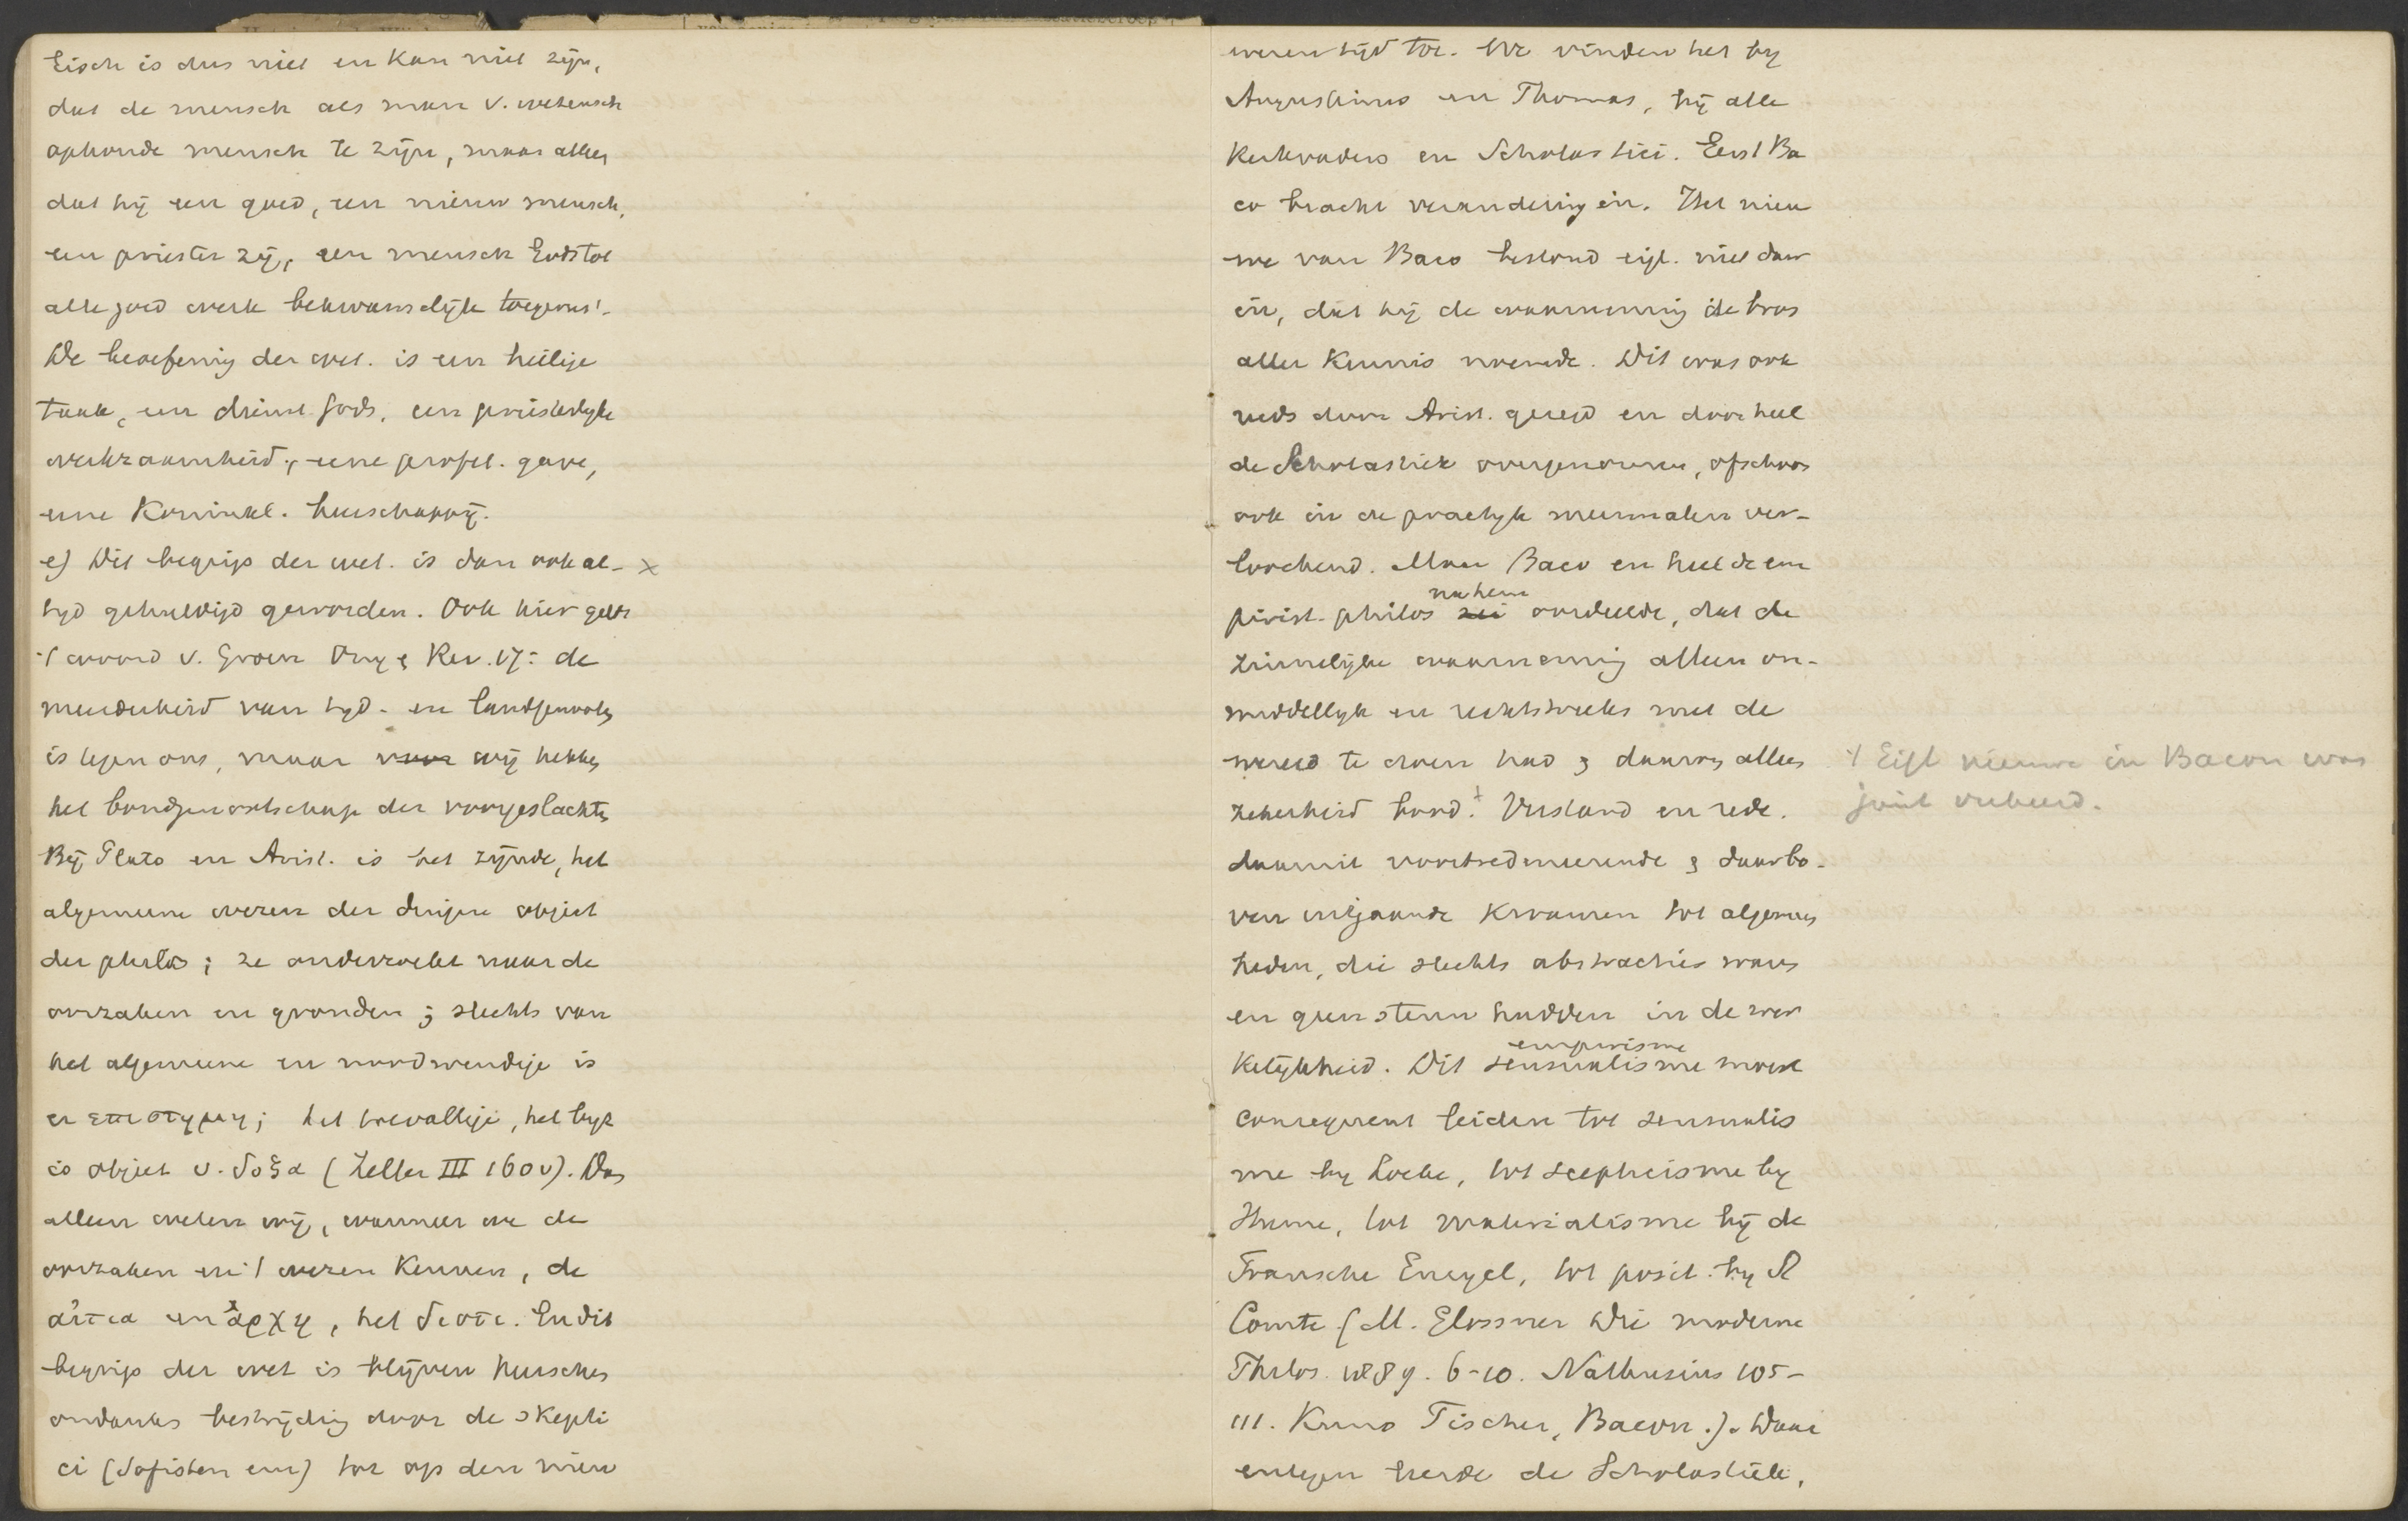 Eisch is dus niet en kan niet zijn,
dat de mensch als man v. wetensch
ophoude mensch te zijn, maar alleen
dat hij een goed, een nieuw mensch,
een priester zij, een mensch Gods tot
alle goed werk bekwamelijk toegerust.
De beoefening der wet. is een heilige
taak, een dienst Gods, een priesterlijke
werkzaamheid, eene profet. gave,
eene Koninkl. heerschappij.
e) Dit begrip der wet. is dan ook al- x
tijd gehuldigd geworden. Ook hier geldt
't woord v. Groen Ong & Rev. 17: de
meerderheid van tijd- en landgenooten
is tegen ons, maar wij hebben
het bondgenootschap der voorgeslachten
Bij Plato en Arist. is het zijnde, het
algemeene wezen der dingen object
der philos; ze onderzoekt naar de
oorzaken en gronden; slechts van
het algemeene en noodwendige is
er επιστημη; het toevallige, het
is object v. δοξα (Zeller III 160 v). Dus
alleen weten wij, wanneer we de
oorzaken en 't wezen kennen, de
αἰτια en ἀρχη, het διοτι. En dit
begrip der wet is blijven heerschen
ondanks bestrijding door de skepti
ci (Sofisten enz) tot op den nieu
weren tijd toe. We vinden het bij
Augustinus en Thomas, bij alle
Kerkvaders en Scholastici. Eerst Ba
co bracht verandering in. Het nieu
we van Baco bestond eigl. niet daar
in, dat hij de waarneming de bron
aller kennis noemde. Dit was ook
reeds door Arist. gezegd en door heel
de Scholastiek overgenomen, ofschoon
ook in de practijk meermalen ver-
loochend. Maar Baco en heel de em
na hem
pirist. philos oordeelde, dat de
zinnelijke waarneming alleen on-
middellijk en rechtstreeks met de
wereld te doen had & daarom alleen
zekerheid bood. Verstand en rede.
daarmit voortredeneerende & daarbo-
ven uitgaande kwamen tot algemeen
heden, die slechts abstracties waren
en geen steun hadden in de wer
empirisme
kelijkheid. Dit sensualisme moest
consequent leiden tot sensualis
me bij Locke, tot scepticisme bij
Hume, tot materialisme bij de
Fransche Encycl, tot posit. bij A
Comte. (M. Glossner Die moderne
Philos. 1889. 6-10. Nathusius 105-
111. Kuno Fischer, Bacon.). Daar
entegen leerde de Scholastiek,
Eigl nieuwe in Bacon was
juist verkeerd.